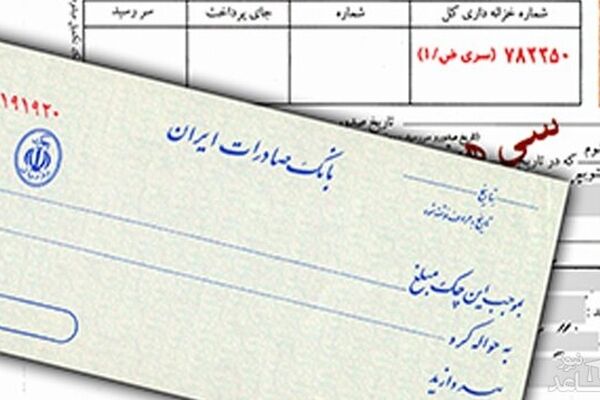 شماره خزانه داری کل شماره جای پرداخت سر رسید
۷۸۲۲۵۰ (سری ض/۱)
تاریخ صدور
که در تاریخ
سی
۱۹۱۹۲۰
بانک صادرات ایران
تاریخ
بموجب این چک مبلغ
به حواله کرد
بپردازید
نیوز